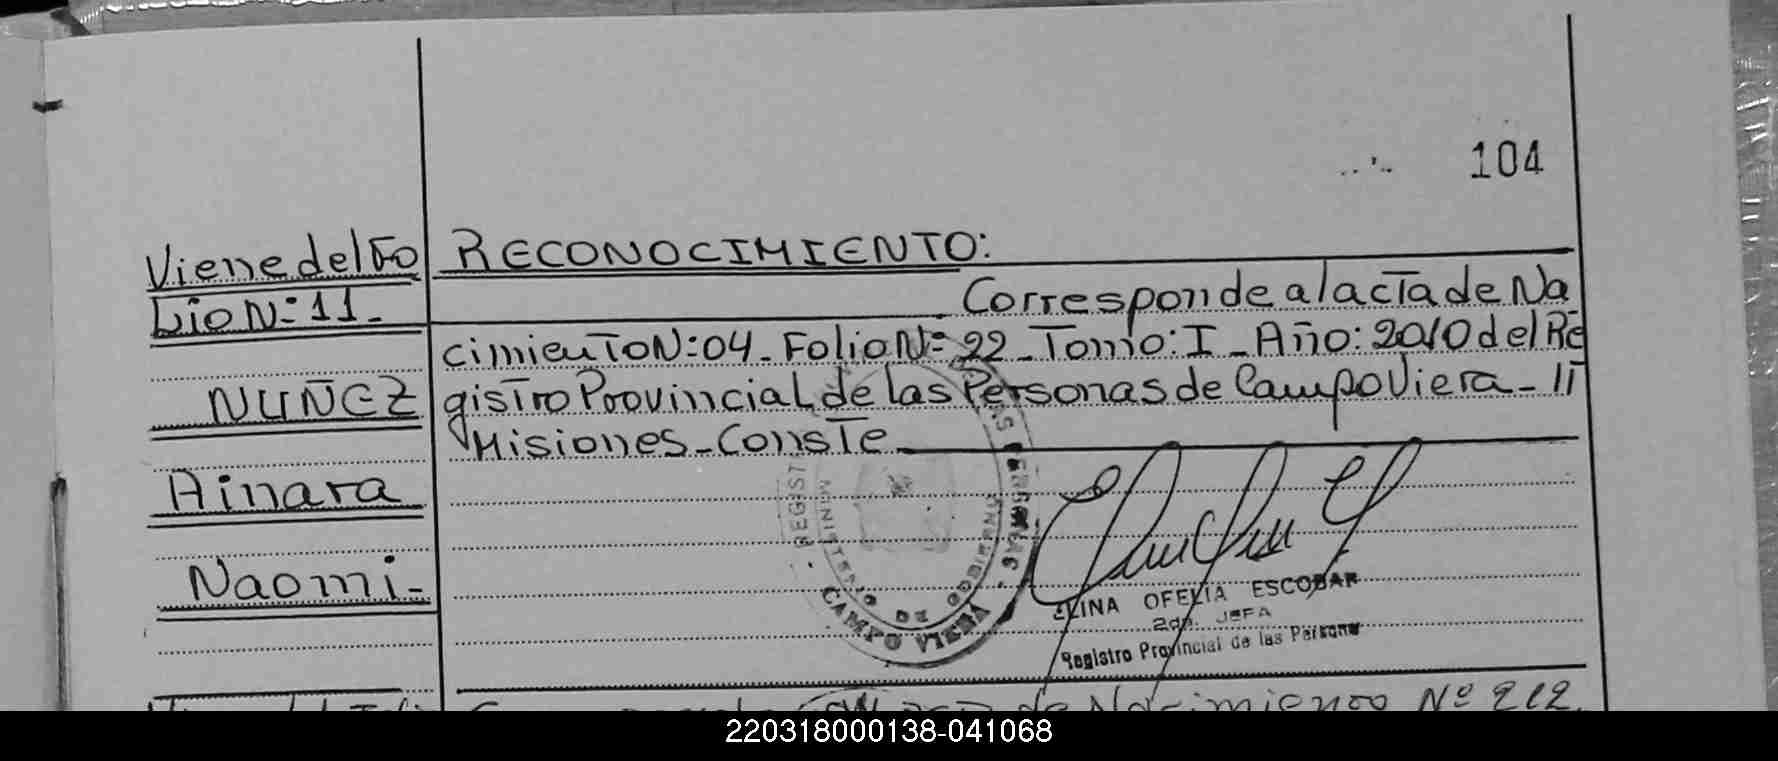 104
Viene del Fo
lio N: 11.
NUÑEZ
Ainara
Naomi.-
RECONOCIMIENTO:
Corresponde al acta de Na
cimiento N: 04. Folio N: 22. Tomo: I. Año: 2010 del Re
gistro Provincial de las Personas de Campo Viera.
Misiones. Conste
CAMPO VIERA
OFELIA ESCOBAR
2da. JEFA
Registro Provincial de las Personas
de Nacimiento Nº 212.
220318000138-041068